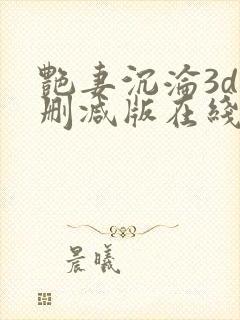 艷妻沉淪3d
删减版在綫
晨曦